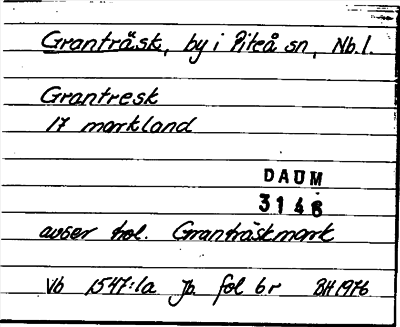 Granträsk, by i Piteå sn, Nb.l.
Grantresk
17 markland
DAUM
3146
avser trol. Granträskmark
Vb 1547:1a Jb. fol 6r BH 1976